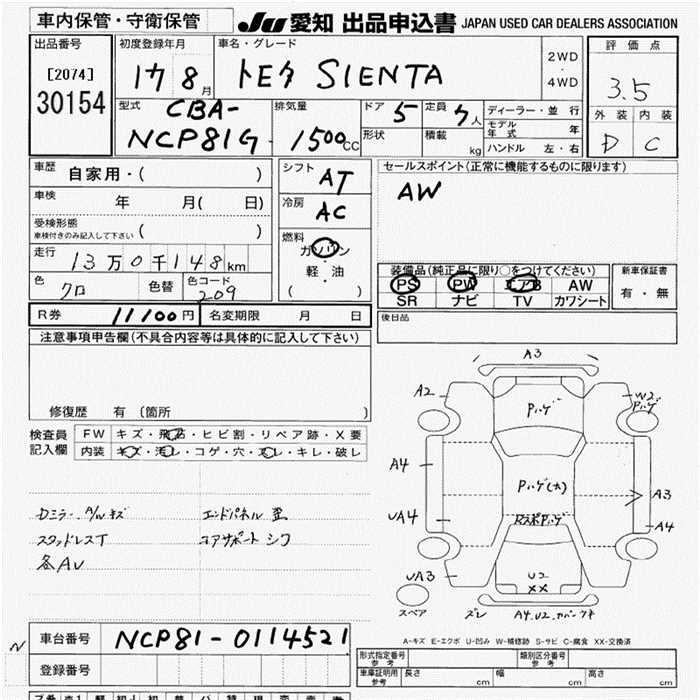 車内保管・守衛保管 JU 愛知 出品申込書 JAPAN USED CAR DEALERS ASSOCIATION
出品番号
[2074]
30154
初度登録年月
17 8月
車名・グレード
トヨタ SIENTA
2WD
・
4WD
評価点
3.5
外装 内装
D C
型式
CBA-
NCP81G
排気量
1500 CC
ドア 5
形状
定員 7人
積載 kg
ディーラー・並行
モデル年式 年
ハンドル 左・右
車歴 自家用・( )
車検 年 月( 日)
受検形態
車検付きのみ記入して下さい ( )
走行 13万0千148km
色 クロ 色替 色コード 209
シフト AT
冷房 AC
燃料
ガソリン
・
軽・油
( )
セールスポイント(正常に機能するものに限ります)
AW
装備品(純正品に限り○をつけてください)
PS PW エアB AW
SR ナビ TV カワシート
新車保証書
有・無
R券 11100円 名変期限 月 日
後日品
注意事項申告欄(不具合内容等は具体的に記入して下さい)
修復歴 有 (箇所 )
検査員
記入欄
FW キズ・飛石・ヒビ割・リペア跡・X要
内装 キズ・汚レ・コゲ・穴・スレ・キレ・破レ
Dミラー A/W キズ
スタッドレスT
各AU
エンドパネル 歪
コアサポート シワ
A3
A2
Pハゲ
W2
Pハゲ
A4
Pハゲ(大)
A3
UA4
RスポPハゲ
A4
UA3
U2
XX
スペア
ズレ
A4.U2.カバーツキ
A-キズ E-エクボ U-凹み W-補修跡 S-サビ C-腐食 XX-交換済
N
車台番号 NCP81-0114521
登録番号
型式指定番号
参考
類別区分番号
参考
車庫証明用
参考
長さ cm 幅 cm 高さ cm